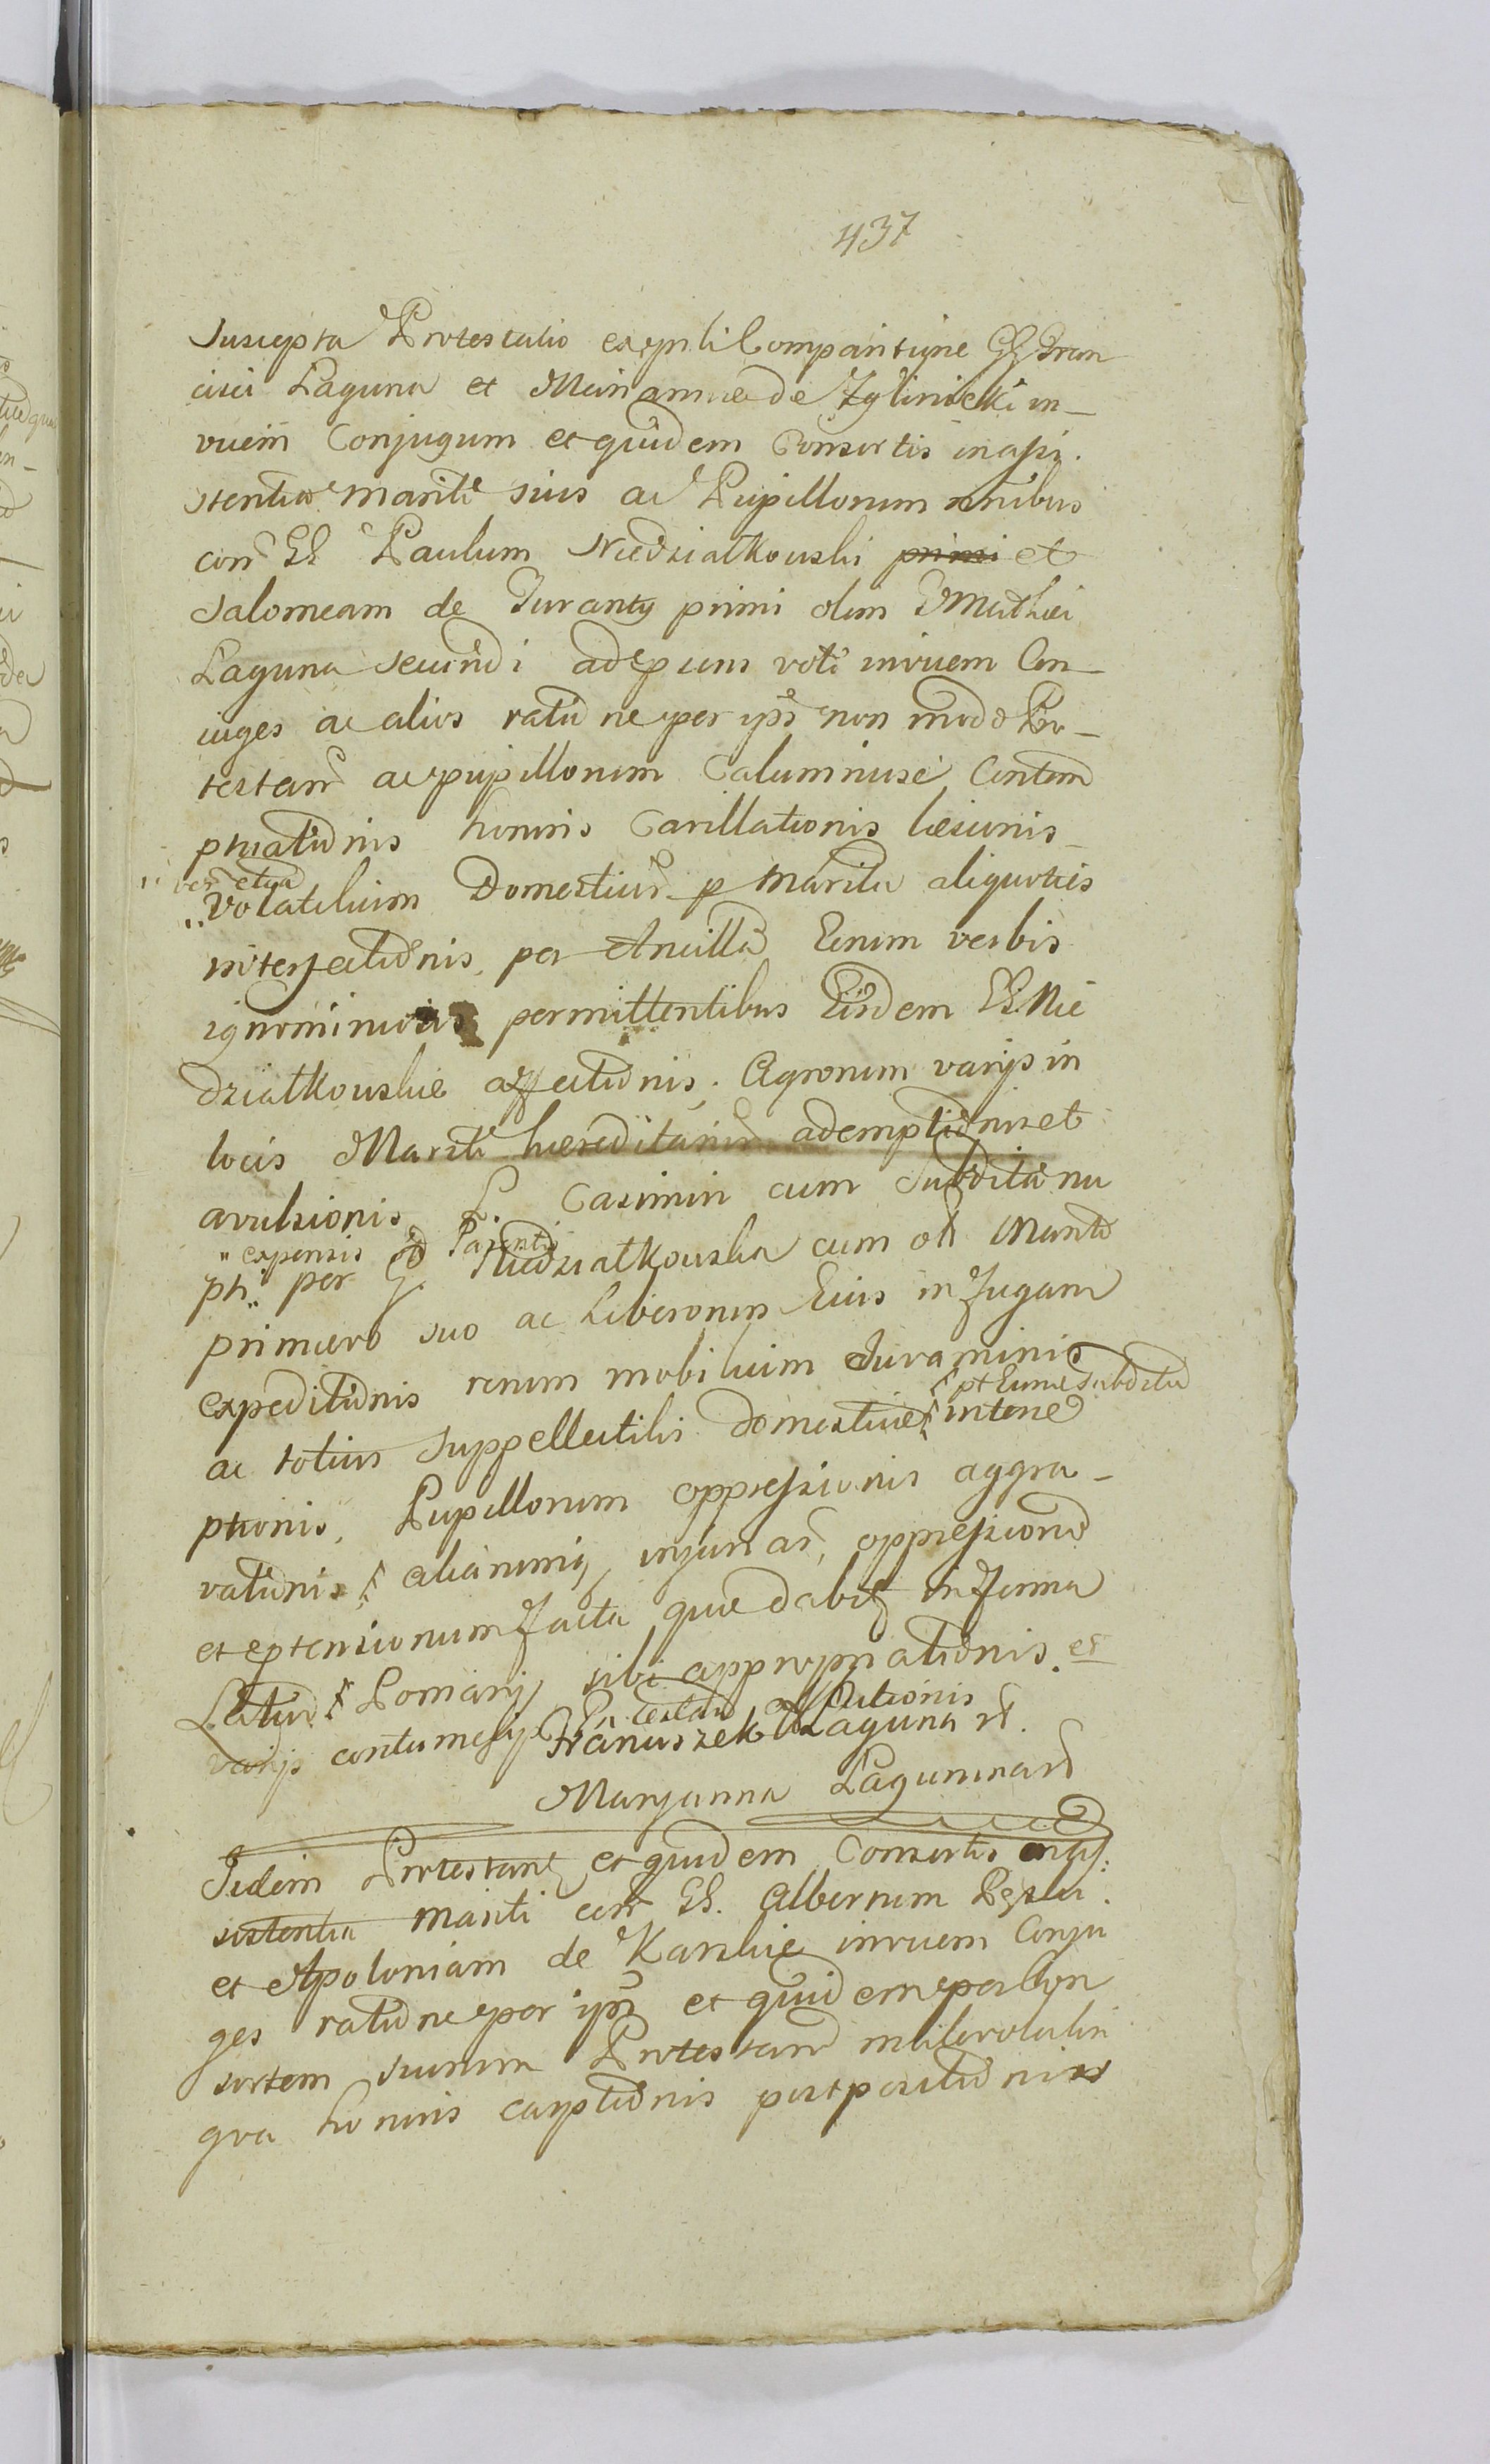 437
Suscepta Protestatio ex gnli Comparitigne GG Fran
cisci Laguna et Mariannae de Zglinickie in-
vicem Conjugum et quidem Consortis in assi.
stentia Mariti sui ac Pupillorum nnibus
con GG Paulum Niedziałkowski primi et
Salomeam de Duranty primi olim G Mathei
Laguna secundi ad presens voti invicem Con-
iuges ac alios ratione per ips non modo Pro-
testan ac pupillorum Calumniose Contem
ptuationis honoris Cavillationis laesionis
" vero etiam
"volatilium Domesticor p Maritu aliquoties
interfectionis, per Ancilla Eorum verbis
ignominiosis permittentibus Eisdem GG. Nie
działkowskie affectionis. Agrorum varijs in
locis Mariti haereditarior ademptionis et
avulsionis L. Casimiri cum Subdita nu
"expensis Parentis
pti" per G. Niedziałkowska cum oli Marito
primiero suo ac Liberorum Eius in fugam
expeditionis rerum mobilium Iuraminis
pt Eurne Subditu
ac totius suppellectilis domesticae intere
ptionis, Pupillorum oppressionis aggra-
vationis aliarumq injuriar, oppressionu
et extensionum facta quae dabit in forma
Latius Pomarij sibi appropriationis. et
varijs contumelijs Protestan affectionis
Franciszek Laguna A.
Maryanna Lagunina
Iidem Protestant et quidem Consortis in assi:
sistentia Mariti con GG. Albertum Pęski.
et Apoloniam de Karskie invicem Conju
ges ratione per ips et quidem per Con
sortem suum Protestan male volatili
gra honoris captionis postpositionis